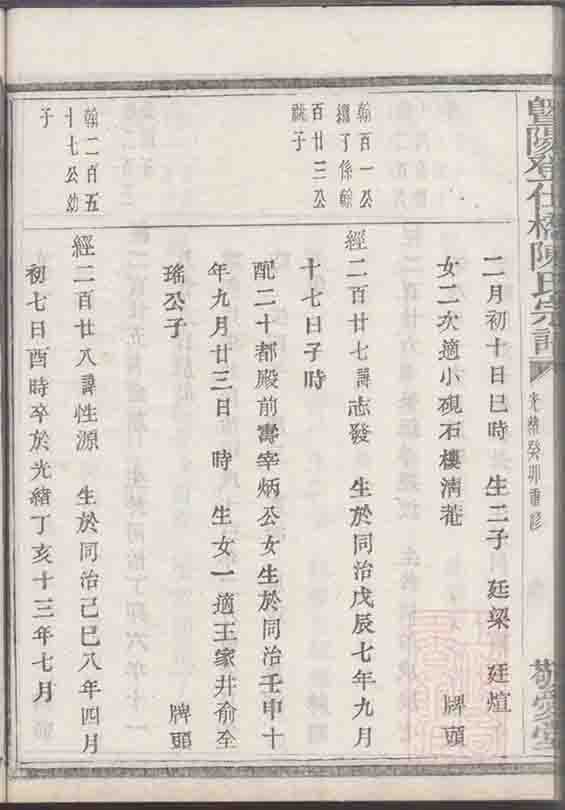 暨陽登仕橋陳氏宗譜
光緒癸卯重修
敬愛堂
二月初十日巳時 生二子 廷梁 廷煊
女二次適小硯石樓淸菴 牌頭
翰百一公
繼子係翰
百廿三公
祧子
經二百廿七諱志發 生於同治戊辰七年九月
十七日子時
配二十都殿前壽宰炳公女生於同治壬申十
年九月廿三日 時 生女一適王家井俞全
瑤公子 牌頭
翰二百五
十七公幼
子
經二百廿八諱性源 生於同治己巳八年四月
初七日酉時卒於光緒丁亥十三年七月